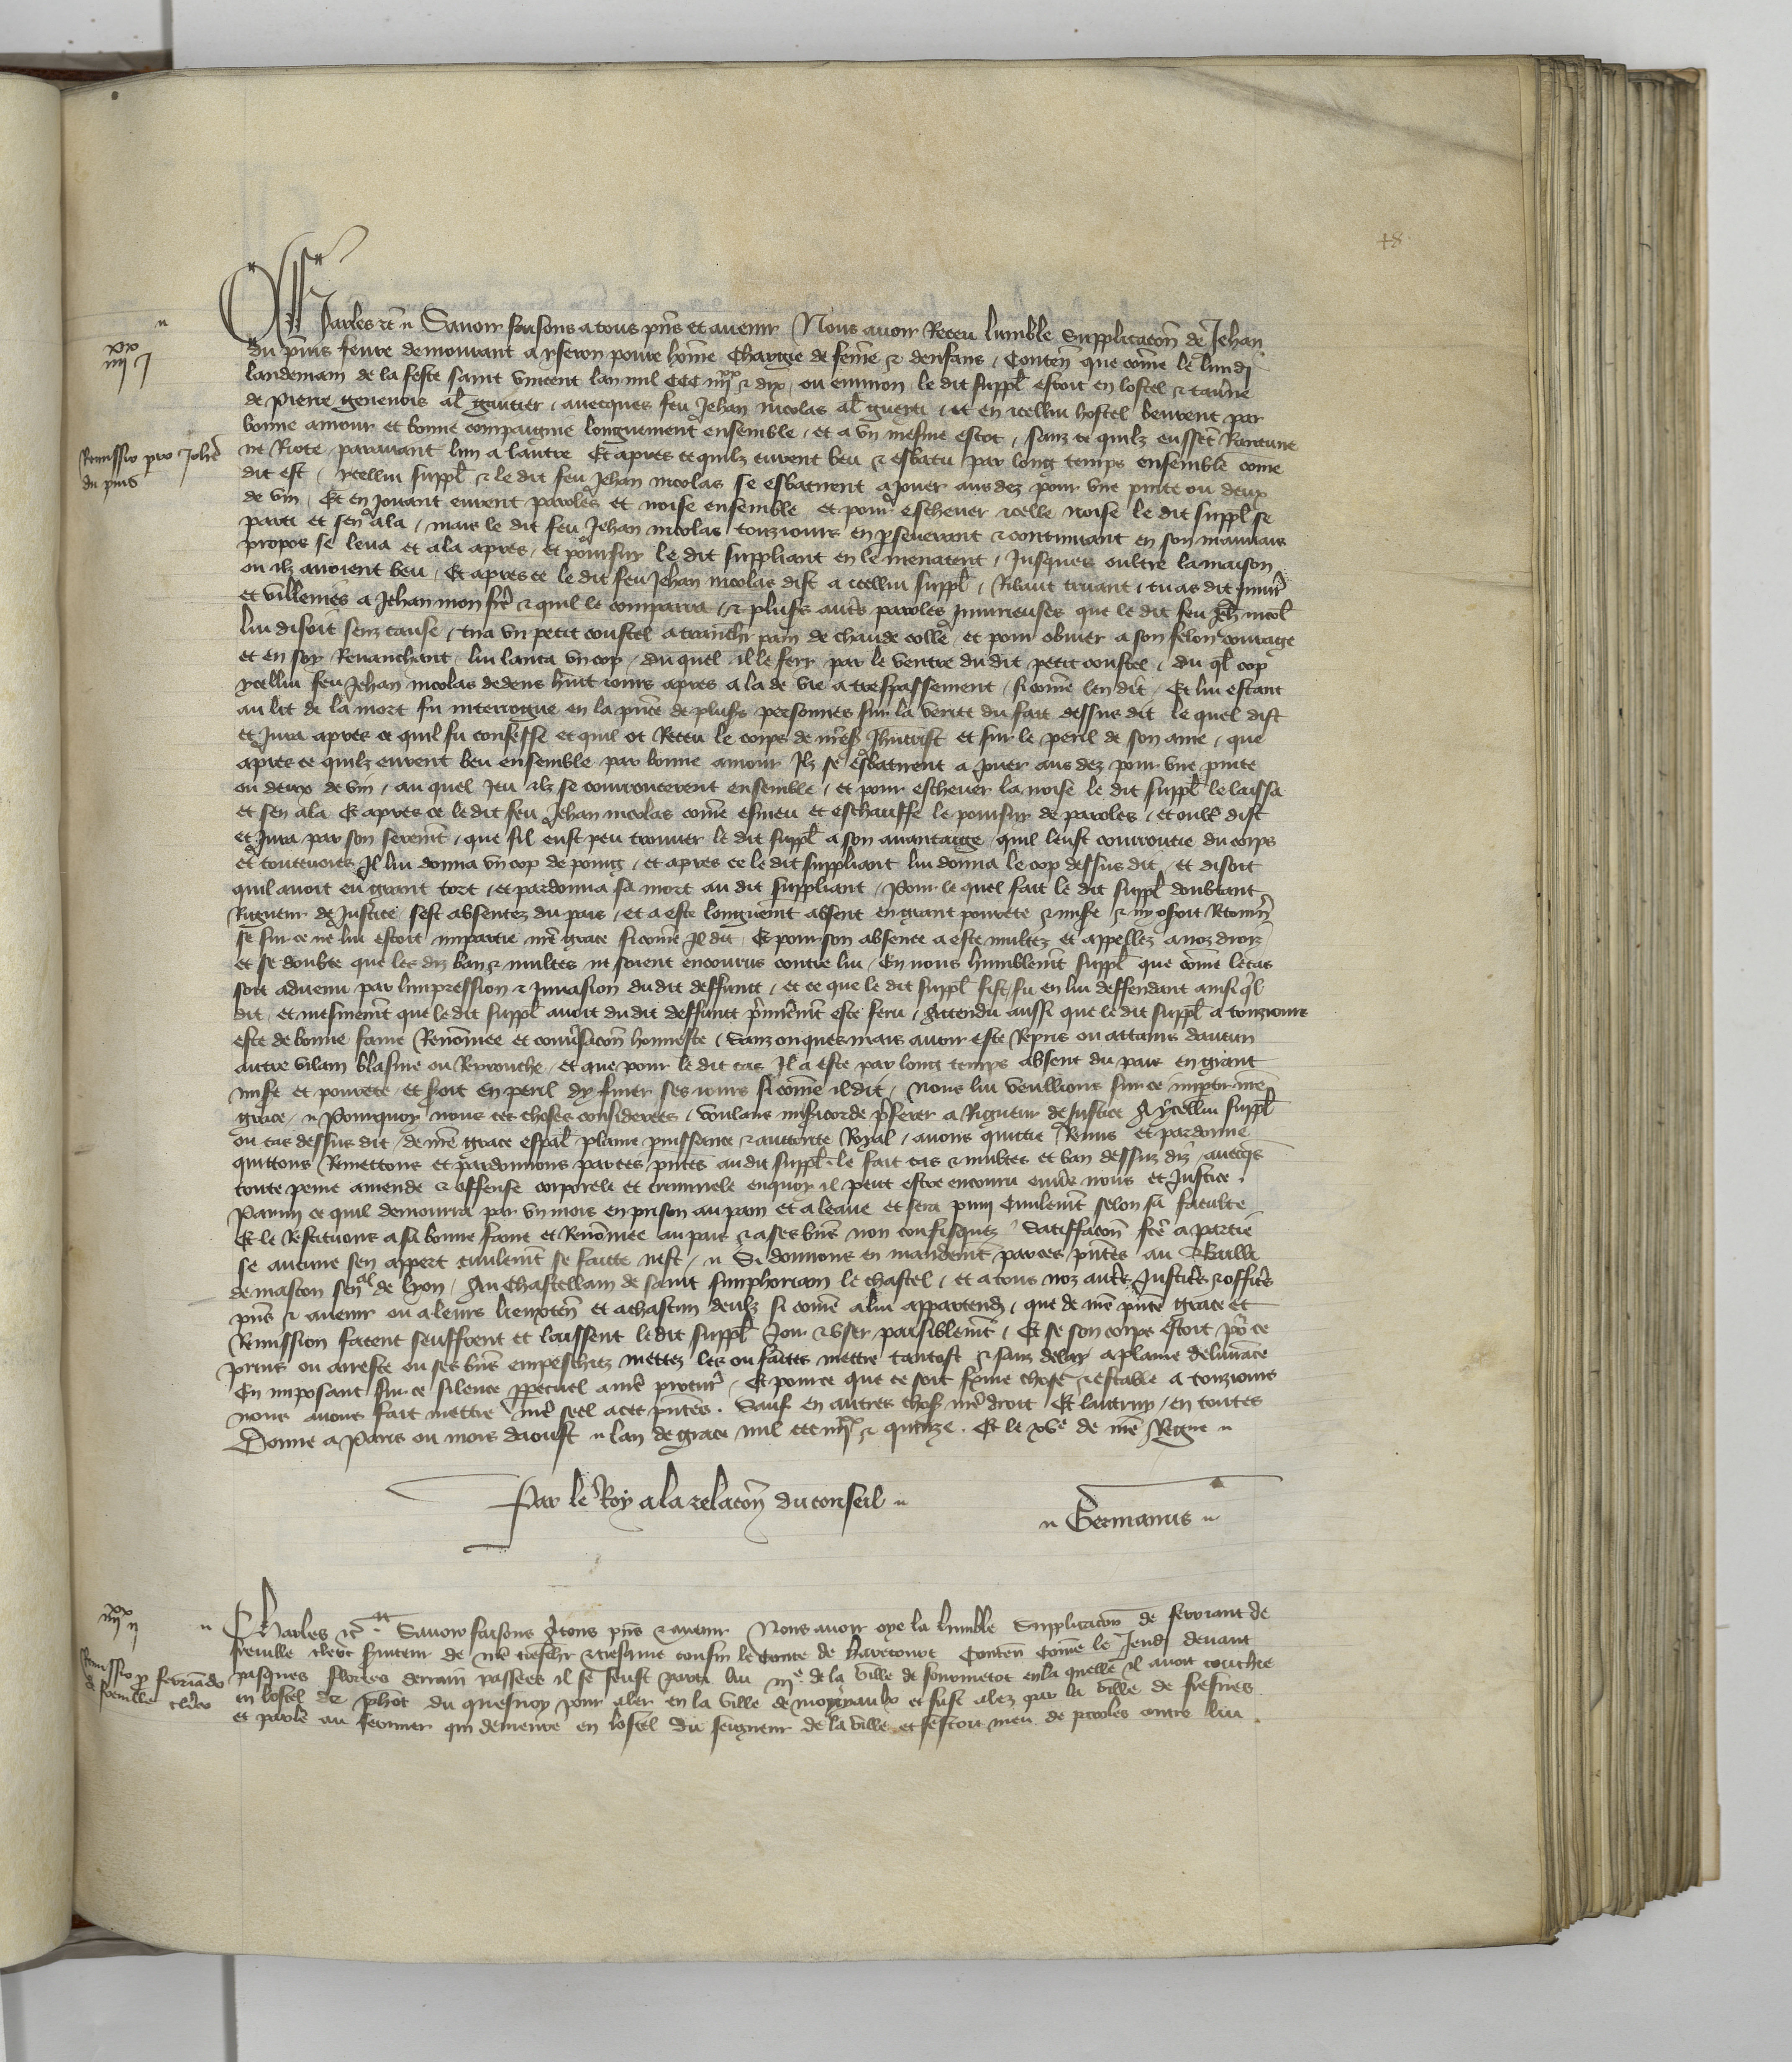 48
Charles etc. Savoir faisons a tous pñs et avenir Nous avoir Receu lumble Supplicacoñ de Jehan
du puis fevre demourant a yseron povre home Chargie de feme & denfans, Conteñ que come le lundj
IIIIxx I
landemain de la feste saint vincent lan mil CCC IIIIxx & dix, ou environ, le dit suppl estoit en lostel & tav'ne
de Pierre genevois al gautier, avecques feu Jehan nicolas al guerri, et en icellui hostel beurent par
bonne amour et bonne compaignie longuement ensemble, et a un mesme escot, sanz ce quilz eussent Rancune
Remissio pro Johe
du puis
ne Riote paravant lun a lautre Et apres ce quilz eurent beu & esbatu par long temps ensemble come
dit est, ycellui suppl & le dit feu Jehan nicolas se esbatirent a Jouer aus dez pour une pinte ou deux
de vin, Et en Jouant eurent paroles et noise ensemble et pour eschever icelle noise le dit suppl se
parti et sen ala, mais le dit feu Jehan nicolas touziours en pseverant & continuant en son mauvais
propos se leva et ala apres, et poursuy le dit suppliant en le menacent, Jusques oultre la maison
ou ilz avoient beu, Et apres ce le dit feu Jehan nicolas dist a icellui suppl, Ribaut truant, tu as dit Jniur
et villenies a Jehan mon fre & quil le comparra, & plus autes paroles Iniurieuses que le dit feu Jeh nicol
lui disoit senz cause, tira un petit coustel a trancher pain de chaude colle, et pour obvier a son felon courage
et en soy Revanchant lui lanca un cop, du quel il le feri par le ventre du dit petit coustel, du ql cop
ycellui feu Jehan nicolas dedens huit iours apres ala de vie a trespassement, si come len dit, Et lui estant
au lit de la mort fu interrogue en la pnce de plus personnes sur la verite du fait dessus dit le quel dist
et Jura apres ce quil fu confesse et quil ot Receu le corps de nres Jhucrist et sur le peril de son ame, que
apres ce quilz eurent beu ensemble par bonne amour Ilz se esbatirent a Jouer aus dez pour une pinte
ou deux de vin, au quel Jeu ilz se courroucerent ensemble, et pour eschever la noise le dit suppl le laissa
et sen ala Et apres ce le dit feu Jehan nicolas come esmeu et eschauffe le poursuy de paroles, et oult dist
et Jura par son seremt, que sil eust peu trouver le dit suppl a son avantaige quil leust courroucie du corps
et toutevoies Il lui donna un cop de poing, et apres ce le dit suppliant lui donna le cop dessus dit, et disoit
quil avoit eu grant tort, et pardonna sa mort au dit suppliant, Pour le quel fait le dit suppl doubtant
Rigueur de Justice sest absentez du pais, et a este longuemt absent en grant povrete & mise, & ny osoit Retourn
se sur ce ne lui estoit impartie nre grace si come Il dit, Et pour son absence a este multez et appellez a noz droiz
et se doubte que les diz ban & multes ne soient encourus contre lui, En nous humblemt suppl que come le cas
soit advenu par limpression & Invasion du dit deffunct, et ce que le dit suppl fist, fu en lui deffendant ainsi ql
dit, et mesmemt que le dit suppl avoit du dit deffunct primeremt este feru, Attendu aussi que le dit suppl a touziours
este de bonne fame Renomee et convsacon honneste, Sanz onques mais avoir este Repris ou attains daucun
autre vilain blasme ou Reprouche, et que pour le dit cas Il a este par long temps absent du pais en grant
mise et povrete et soit en peril dy finer ses iours si come il dit, Nous lui vueillions sur ce imptir nre
grace, Pourquoy nous ces choses considerees, voulans misicorde pferer a Rigueur de Justice A ycellui suppl
ou cas dessus dit, de nre grace espal plaine puissance & auctorite Royal, avons quittie Remis et pardonne
quittons Remettons et pardonnons par ces pntes au dit suppl le fait cas & multes et ban dessuz diz, avecqs
toute peine amende & offense corporele et criminele en quoy il peut estre encouru envs nous et Justice.
Parmi ce quil demourra par un mois en prison au pain et a leaue et sera puni Civilemt selon sa faculte
Et le Restituons a sa bonne fame et Renomee au pais & a ses bns non confisquez Satiffacon fce a partie
se aucune sen appert civilemt se faicte nest, Si donnons en mandemt par ces pntes au Bailli
de mascon senal de lyon, Au Chastellain de saint simphorian le chastel, et a touz noz autes Justices & offices
pns & avenir ou a leurs lieuxten et achascun deulz si come a lui appartendra, que de nre pnte grace et
Remission facent seuffrent et laissent le dit suppl Joir & user paisiblemt, Et se son corps estoit por ce
prins ou arreste ou ses bns empeschiez mettez les ou faites mettre tantost & sanz delay a plaine delivrance
En imposant sur ce silence ppetuel a nre procur, Et pour ce que ce soit ferme chose & estable a touziours
nous avons fait mettre nre seel a ces pntes. Sauf en autres chos nre droit Et lautruy, en toutes
Donne a Paris ou mois daoust lan de grace mil ccc IIIIxx & quinze. Et le xve de nre Regne
Par le Roy a la relacon du conseil
Germanus
IIIIxx II
Charles etc. Savoir faisons A tous pns & avenir Nous avoir oye la humble Supplicacion de ferrant de
freville clerc serviteur de nre treschier & tresame cousin le Conte de harecourt Conten Come le Jeudi devant
Remissio p ferrando
de freville clerico
pasques flories derrain passees il se feust parti lui IIIe de la ville de sonnemetot en la quelle il avoit couchie
en lostel de phot du quesnoy pour aler en la ville de moyaulx et fust alez par la ville de fresnes
et parle au fermier qui demeure en lostel du seigneur de la ville et sestoit meu de paroles entre lui